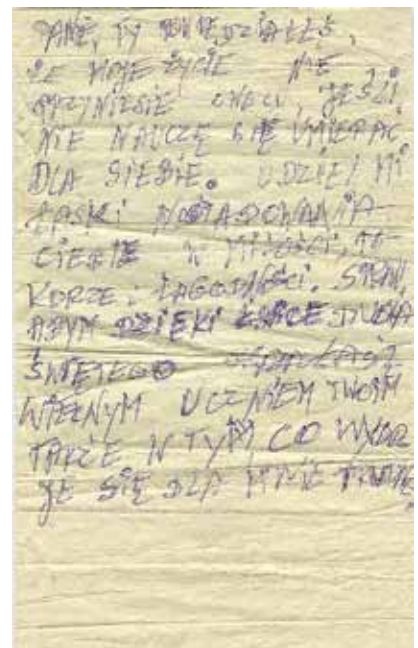 PANIE, TY POWIEDZIAŁEŚ,
ŻE MOJE ŻYCIE NIE
PRZYNIESIE OWOCU, JEŚLI
NIE NAUCZĘ SIĘ UMIERAĆ
DLA SIEBIE. UDZIEL MI
ŁASKI NAŚLADOWANIA
CIEBIE W MIŁOŚCI, PO-
KORZE I ŁAGODNOŚCI. SPRAW,
ABYM DZIĘKI ŁASCE DUCHA
ŚWIĘTEGO
WIERNYM UCZNIEM TWOIM
TAKŻE W TYM, CO WYDA-
JE SIĘ DLA MNIE TRUDNE